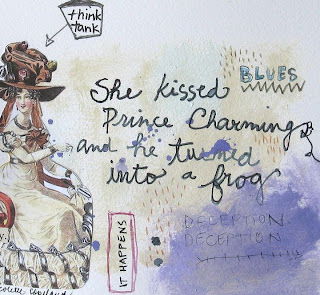 think
tank
BLUES
She kissed
Prince Charming
and he turned
into a frog
DECEPTION
DECEPTION
IT HAPPENS